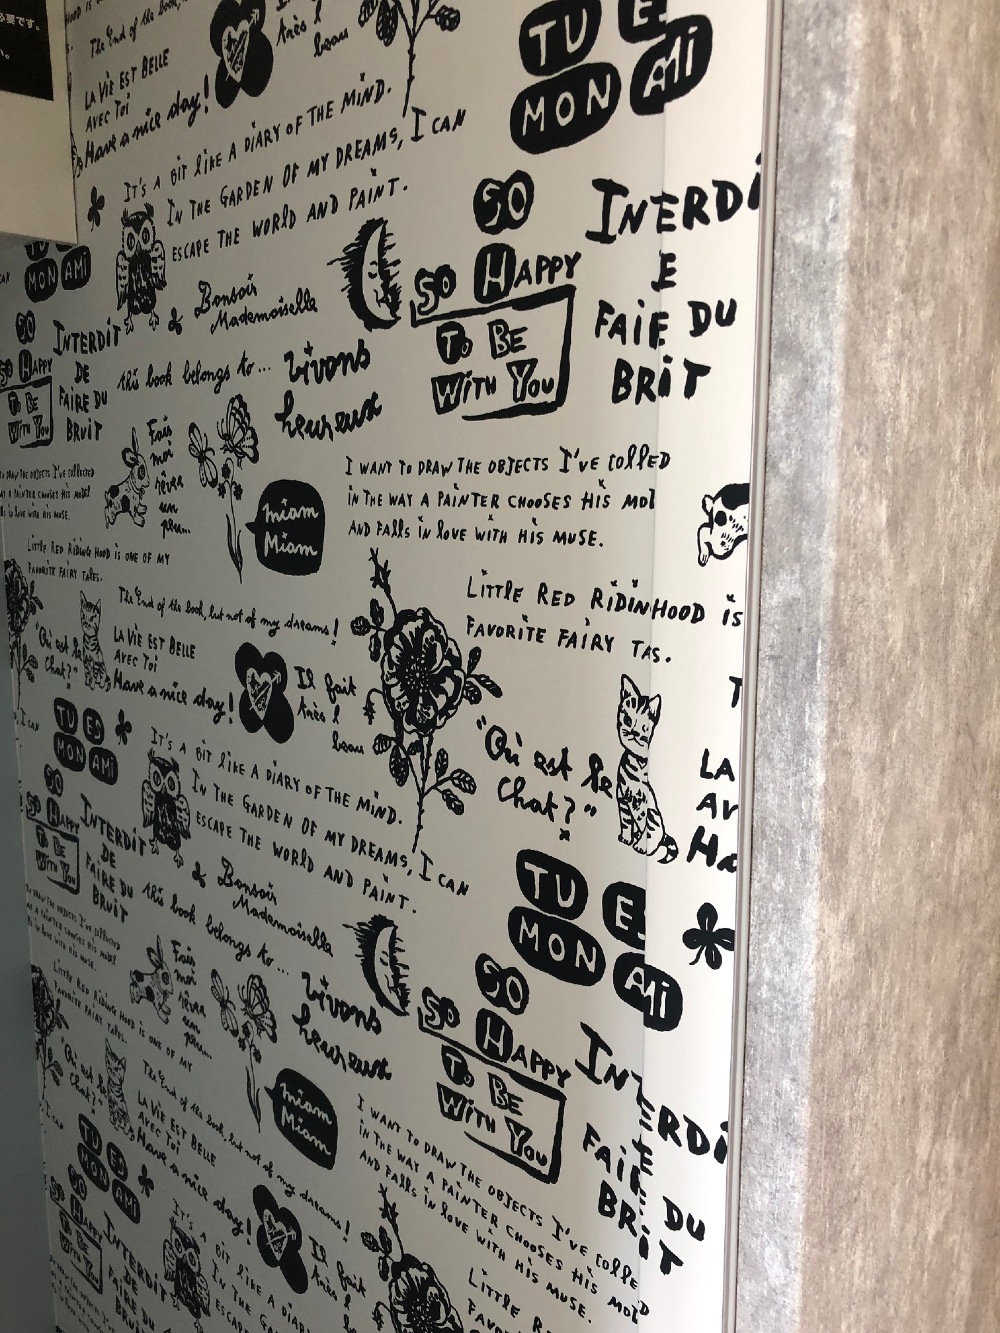 必要です。
The End of the book,
LA ViE EST BELLE
AVEC Toi
Have a nice day!
très l
beau
TU E
MON AMi
IT'S A BIT LIKE A DIARY OF THE MIND.
IN THE GARDEN OF MY DREAMS, I CAN
ESCAPE THE WORLD AND PAINT.
MON AMi
SO
SO HAPPY
TO BE
WITH YOU
INERDi
E
FAiE DU
BRiT
Bonsoir
Mademoiselle
SO
SO HAPPY
TO BE
WITH YOU
INTERDIT
DE
FAIRE DU
BRUIT
this book belongs to...
Vivons
heureux
Fais
moi
rêver
un
peu...
miam
Miam
I WANT TO DRAW THE OBJECTS I'VE COllED
IN THE WAY A PAINTER CHOOSES HIS MOl
AND FALLS IN LOVE WITH HIS MUSE.
TO DRAW THE OBJECTS I'VE COLLECTED
WAY A PAINTER CHOOSES HIS MODEL
IN LOVE WITH HIS MUSE.
LITTLE RED RIDING HOOD IS ONE OF MY
FAVORITE FAIRY TALES.
LITTLE RED RIDINHOOD iS
FAVORITE FAIRY TAS.
The End of the book, but not of my dreams!
"Où est le
Chat?"
LA ViE EST BELLE
AVEC Toi
Have a nice day!
Il fait
très l
beau
"Où est le
Chat?"
T
LA
AV
Ha
TU ES
MON AMi
IT'S A BIT LIKE A DIARY OF THE MIND.
IN THE GARDEN OF MY DREAMS, I CAN
ESCAPE THE WORLD AND PAINT.
TU E
MON AMi
SO
SO HAPPY
TO BE
WITH YOU
INTERDIT
DE
FAIRE DU
BRUIT
Bonsoir
Mademoiselle
this book belongs to...
Vivons
heureux
SO
SO HAPPY
TO BE
WITH YOU
Fais
moi
rêver
un
peu...
miam
Miam
LITTLE RED RIDING HOOD IS ONE OF MY
FAVORITE FAIRY TALES.
I WANT TO DRAW THE OBJECTS I'VE COLLE
IN THE WAY A PAINTER CHOOSES HIS MOD
AND FALLS IN LOVE WITH HIS MUSE.
"Où est le
Chat?"
The End of the book, but not of my dreams!
LA ViE EST BELLE
AVEC Toi
Have a nice day!
Il fait
très l
beau
TU ES
MON AMi
SO
SO HAPPY
TO BE
WITH YOU
INTERDIT
DE
FAIRE DU
IT'S
A BIT LIKE A
IN THE GARDEN
LITTLE